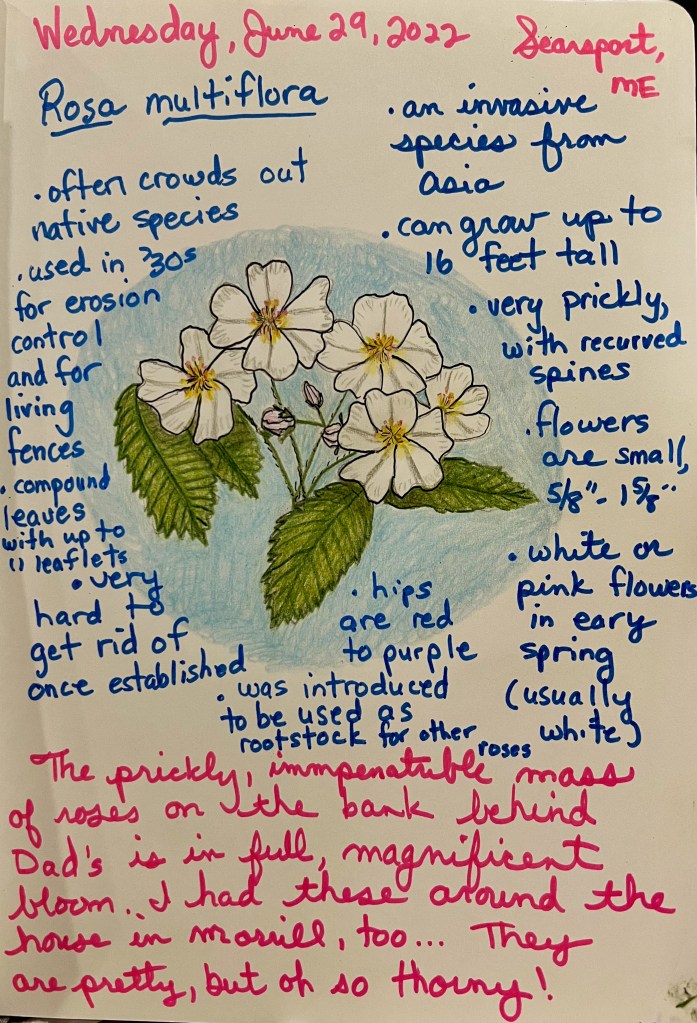 Wednesday, June 29, 2022
Searsport,
ME
Rosa multiflora
• often crowds out
native species
• used in '30s
for erosion
control
and for
living
fences
• compound
leaves
with up to
11 leaflets
• very
hard to
get rid of
once established
• an invasive
species from
Asia
• can grow up to
16 feet tall
• very prickly,
with recurved
spines
• flowers
are small,
5/8" - 1 5/8"
• white or
pink flowers
in eary
spring
(usually
white)
• hips
are red
to purple
• was introduced
to be used as
rootstock for other roses
The prickly, immpenatruble mass
of roses on the bank behind
Dad's is in full, magnificent
bloom. I had these around the
house in Morrill, too... They
are pretty, but oh so thorny!